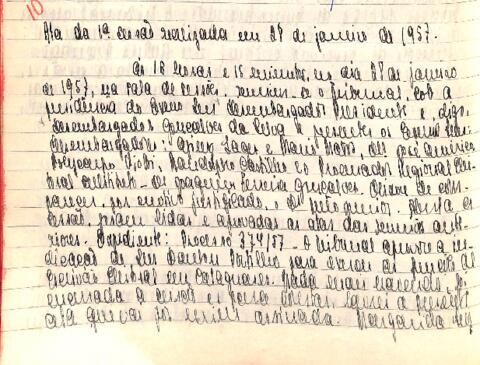 10
Ata da 1ª sessão realizada em 28 de janeiro de 1957.
às 16 horas e 15 minutos, no dia 28 de janeiro
de 1957, na sala de sessões, reuniu-se o Tribunal, sob a
presidência do Exmo Snr Desembargador Presidente e, digo,
Desembargador Gonçalves da Silva e presentes os Exmos Snrs
Desembargadores: Lages e Mário Matos, José Américo
e o Procurador Regional Elei-
toral substituto Joaquim Ferreira Gonçalves. Deixou de com-
parecer, por motivo justificado, o Aberta a
sessão, foram lidas e aprovadas as atas das reuniões ante-
riores. Expediente: Processo 374/57 - O Tribunal aprovou a in-
dicação de para exercer as funções de
Escrivão Eleitoral em Cataguases. Nada mais havendo, foi
encerrada a sessão e, para constar, lavrei a presente
ata que vai por mim assinada. Margarida